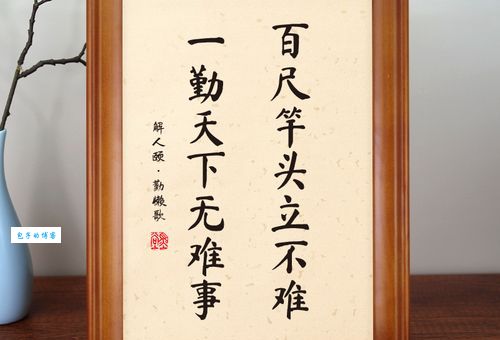 百尺竿头立不难
一勤天下无难事
解人颐·勤懒歌
包子的博客